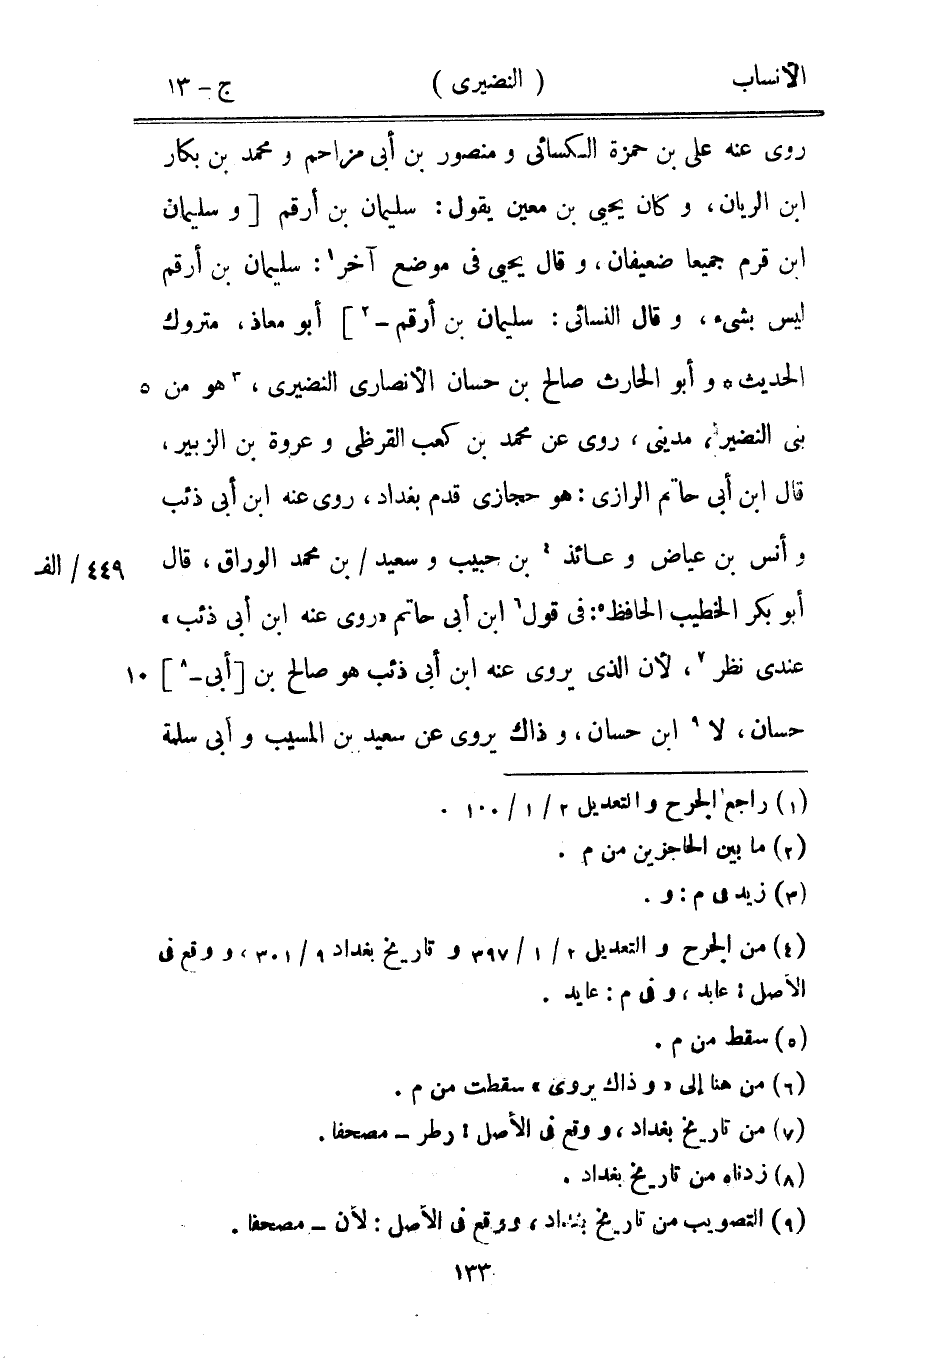 الأنساب ( النضيرى ) ج - ١٣
روى عنه على بن حمزة الكسائى و منصور بن أبى مزاحم و محمد بن بكار
ابن الريان، و كان يحيى بن معين يقول: سليمان بن أرقم [ و سليمان
ابن قرم جميعا ضعيفان، و قال يحيى فى موضع آخر١: سليمان بن أرقم
ليس بشىء، و قال النسائى: سليمان بن أرقم -٢ ] أبو معاذ، متروك
الحديث* و أبو الحارث صالح بن حسان الأنصارى النضيرى، ٣ هو من ٥
بنى النضير، مدينى، روى عن محمد بن كعب القرظى و عروة بن الزبير،
قال ابن أبى حاتم الرازى: هو حجازى قدم بغداد، روى عنه ابن أبى ذئب
و أنس بن عياض و عائذ ٤ بن حبيب و سعيد / بن محمد الوراق، قال ٤٤٩ / الف
أبو بكر الخطيب الحافظ٥: فى قول٦ ابن أبى حاتم «روى عنه ابن أبى ذئب»
عندى نظر ٧، لأن الذى يروى عنه ابن أبى ذئب هو صالح بن [أبى -٨ ] ١٠
حسان، لا ٩ ابن حسان، و ذاك يروى عن سعيد بن المسيب و أبى سلمة
(١) راجع الجرح و التعديل ٢ / ١ / ١٠٠ .
(٢) ما بين الحاجزين من م .
(٣) زيد فى م : و .
(٤) من الجرح و التعديل ٢ / ١ / ٣٩٧ و تاريخ بغداد ٩ / ٣٠١، و وقع فى
الأصل : عابد، و فى م : عايد .
(٥) سقط من م .
(٦) من هنا إلى « و ذاك يروى » سقطت من م .
(٧) من تاريخ بغداد، و وقع فى الأصل : رطر - مصحفا .
(٨) زدناه من تاريخ بغداد .
(٩) التصويب من تاريخ بغداد، ووقع فى الأصل : لأن - مصحفا .
١٣٣